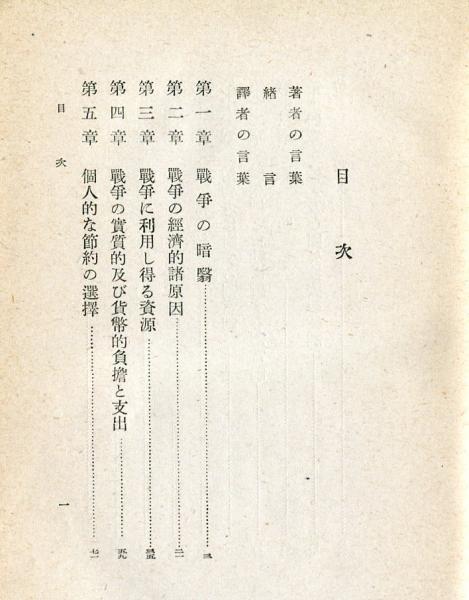 目次
著者の言葉
緒言
譯者の言葉
第一章 戰爭の暗翳……三
第二章 戰爭の經濟的諸原因……二一
第三章 戰爭に利用し得る資源……三五
第四章 戰爭の實質的及び貨幣的負擔と支出……五九
第五章 個人的な節約の選擇……七一
目次 一